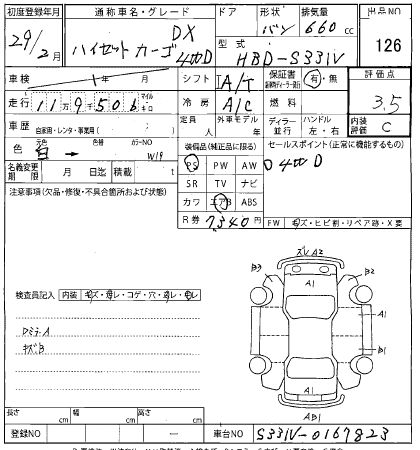 初度登録年月 通称車名・グレード ドア 形状 排気量 出品NO
29/2月 ハイゼットカーゴ DX 4WD バン 660cc 126
型式 HBD-S331V
車検 年 月 シフト A/T 保証書 有・無 評価点 3.5
走行 マイル キロ 冷房 A/C 燃料
車歴 自家用・レンタ・事業用( ) 定員 人 外車モデル 年 ディーラー 並行 ハンドル 左・右 内装評価 C
色 元色 白 色替 カラーNO W19 装備品(純正品に限る) セールスポイント(正常に機能するもの)
名義変更期限 月 日迄 積載 t PS PW AW 4WD
注意事項(欠品・修復・不具合箇所および状態) SR TV ナビ
カワ エアB ABS
R券 7,340円 FW キズ・ヒビ割・リペア跡・X要
ズレ A2
B3 A1 B2
検査員記入 内装
A1
A1
キズB
B1
A1
AB1
長さ cm 幅 cm 高さ cm
登録NO ー 車台NO S331V-0167823